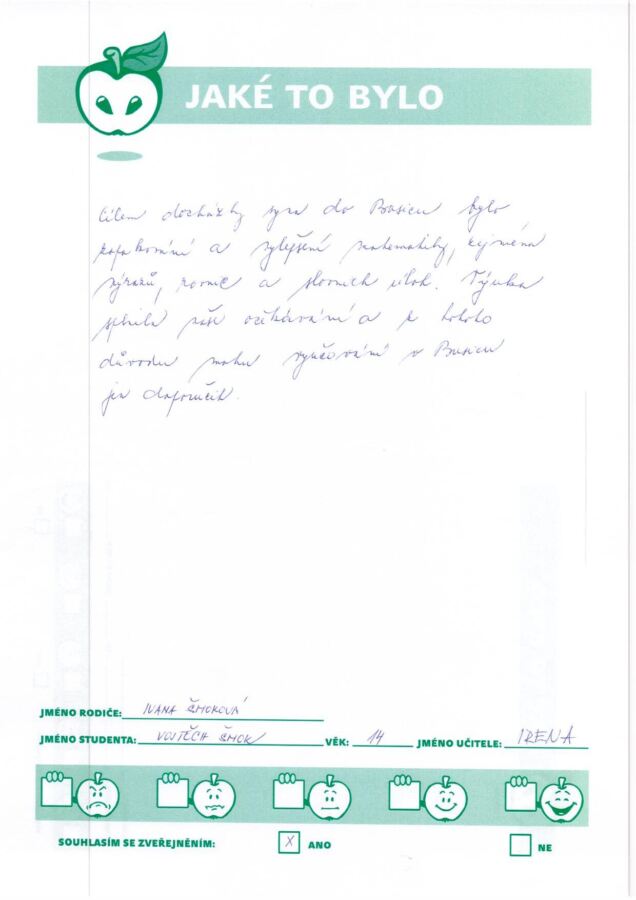 JAKÉ TO BYLO
Cílem docházky syna do Basicu bylo
zopakování a zlepšení matematiky, zejména
výrazů, rovnic a slovních úloh. Výuka
splnila naše očekávání a z tohoto
důvodu mohu vyučování v Basicu
jen doporučit.
JMÉNO RODIČE: IVANA ČMOKOVÁ
JMÉNO STUDENTA: VOJTĚCH ČMOK VĚK: 14 JMÉNO UČITELE: IRENA
SOUHLASÍM SE ZVEŘEJNĚNÍM: X ANO NE